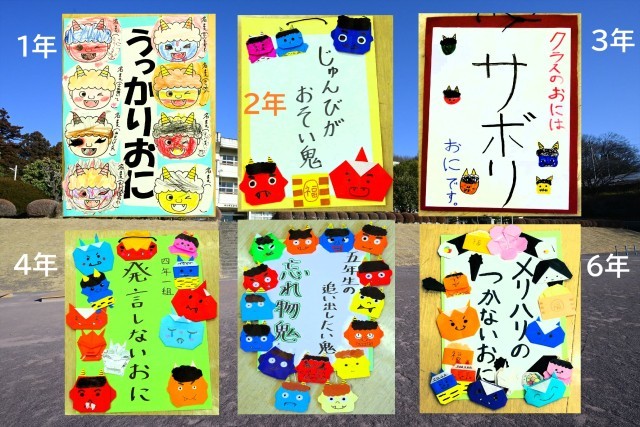 1年
うっかりおに
2年
じゅんびが
おそい鬼
福
3年
クラスのおには
サボリ
おにです。
4年
四年一組
発言しないおに
五年生の
追い出したい鬼
忘れ物鬼
6年
メリハリの
つかないおに